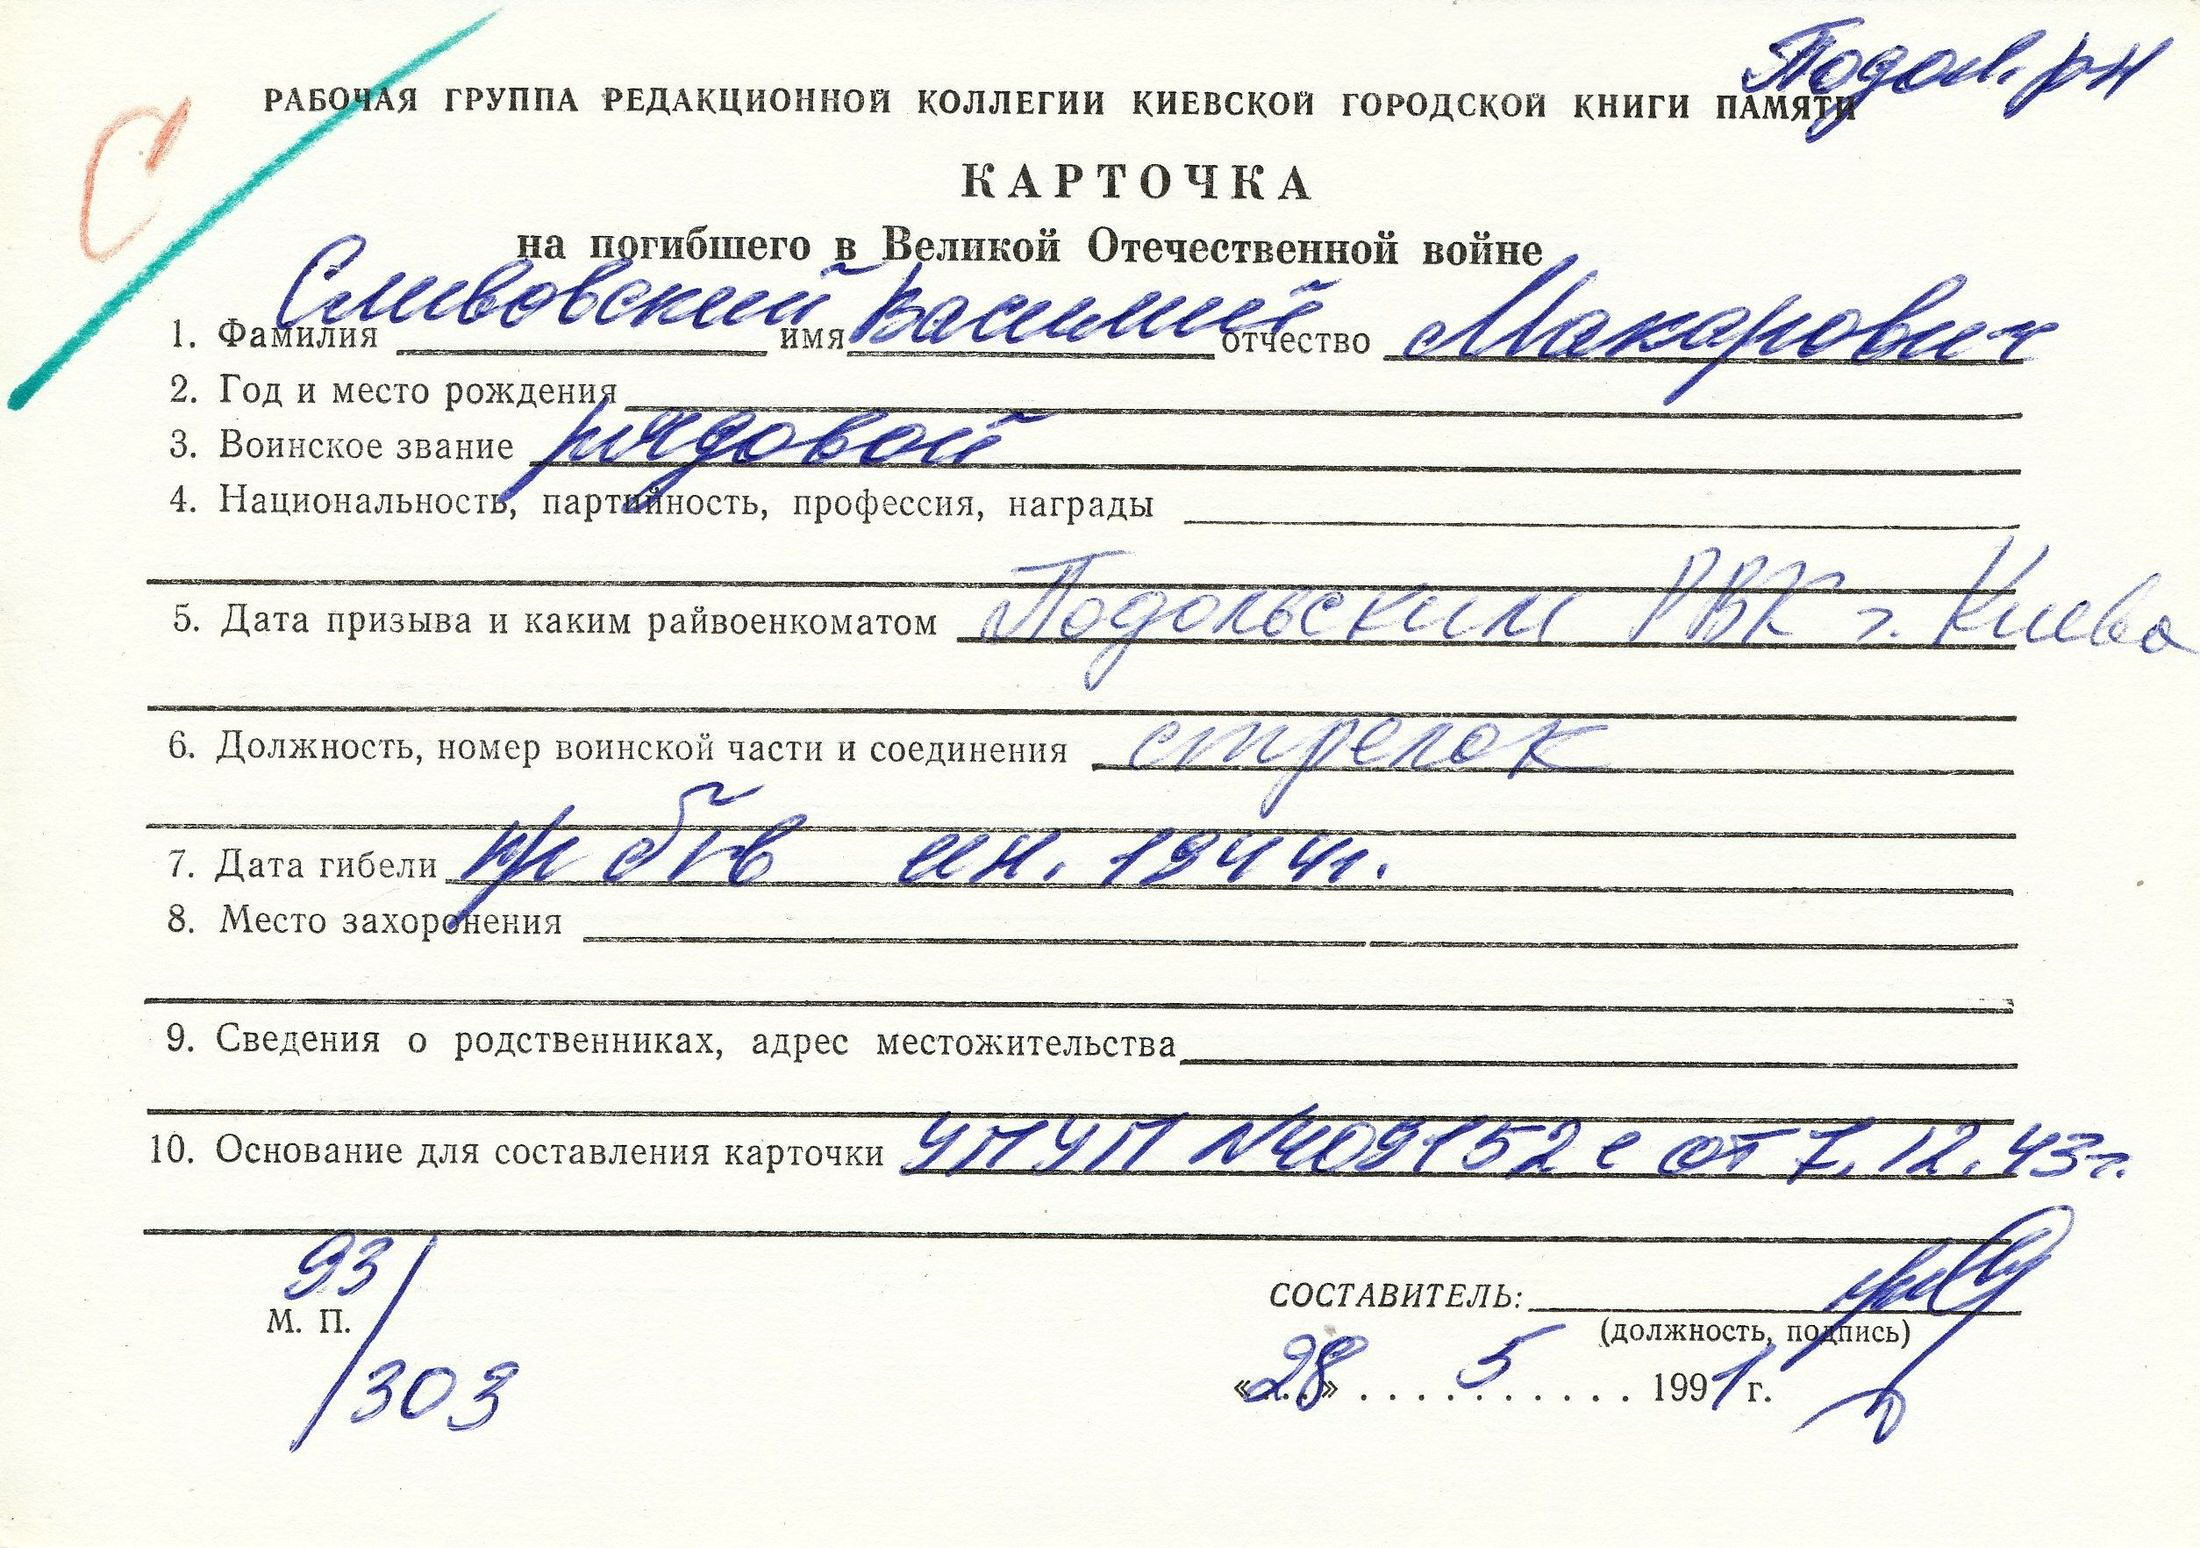 Подол. р-н
С
РАБОЧАЯ ГРУППА РЕДАКЦИОННОЙ КОЛЛЕГИИ КИЕВСКОЙ ГОРОДСКОЙ КНИГИ ПАМЯТИ
КАРТОЧКА
на погибшего в Великой Отечественной войне
1. Фамилия Сливовский имя Василий отчество Макарович
2. Год и место рождения
3. Воинское звание рядовой
4. Национальность, партийность, профессия, награды
5. Дата призыва и каким райвоенкоматом Подольским РВК г. Киева
6. Должность, номер воинской части и соединения стрелок
7. Дата гибели пр б/в 1944г.
8. Место захоронения
9. Сведения о родственниках, адрес местожительства
10. Основание для составления карточки УПУП №409152 с от 7.12.43г.
93/303
М. П.
СОСТАВИТЕЛЬ:
(должность, подпись)
«28» 5 1991 г.